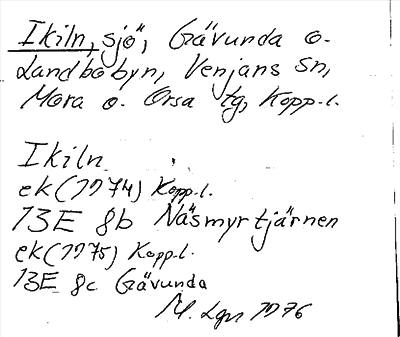 Ikiln, sjö, Gävunda o.
Landbobyn, Venjans sn,
Mora o. Orsa tg, Kopp.l.
Ikiln
ek (1974) Kopp.l.
13E 8b Näsmyrtjärnen
ek (1975) Kopp.l.
13E 8c Gävunda
M. Lgn 1976